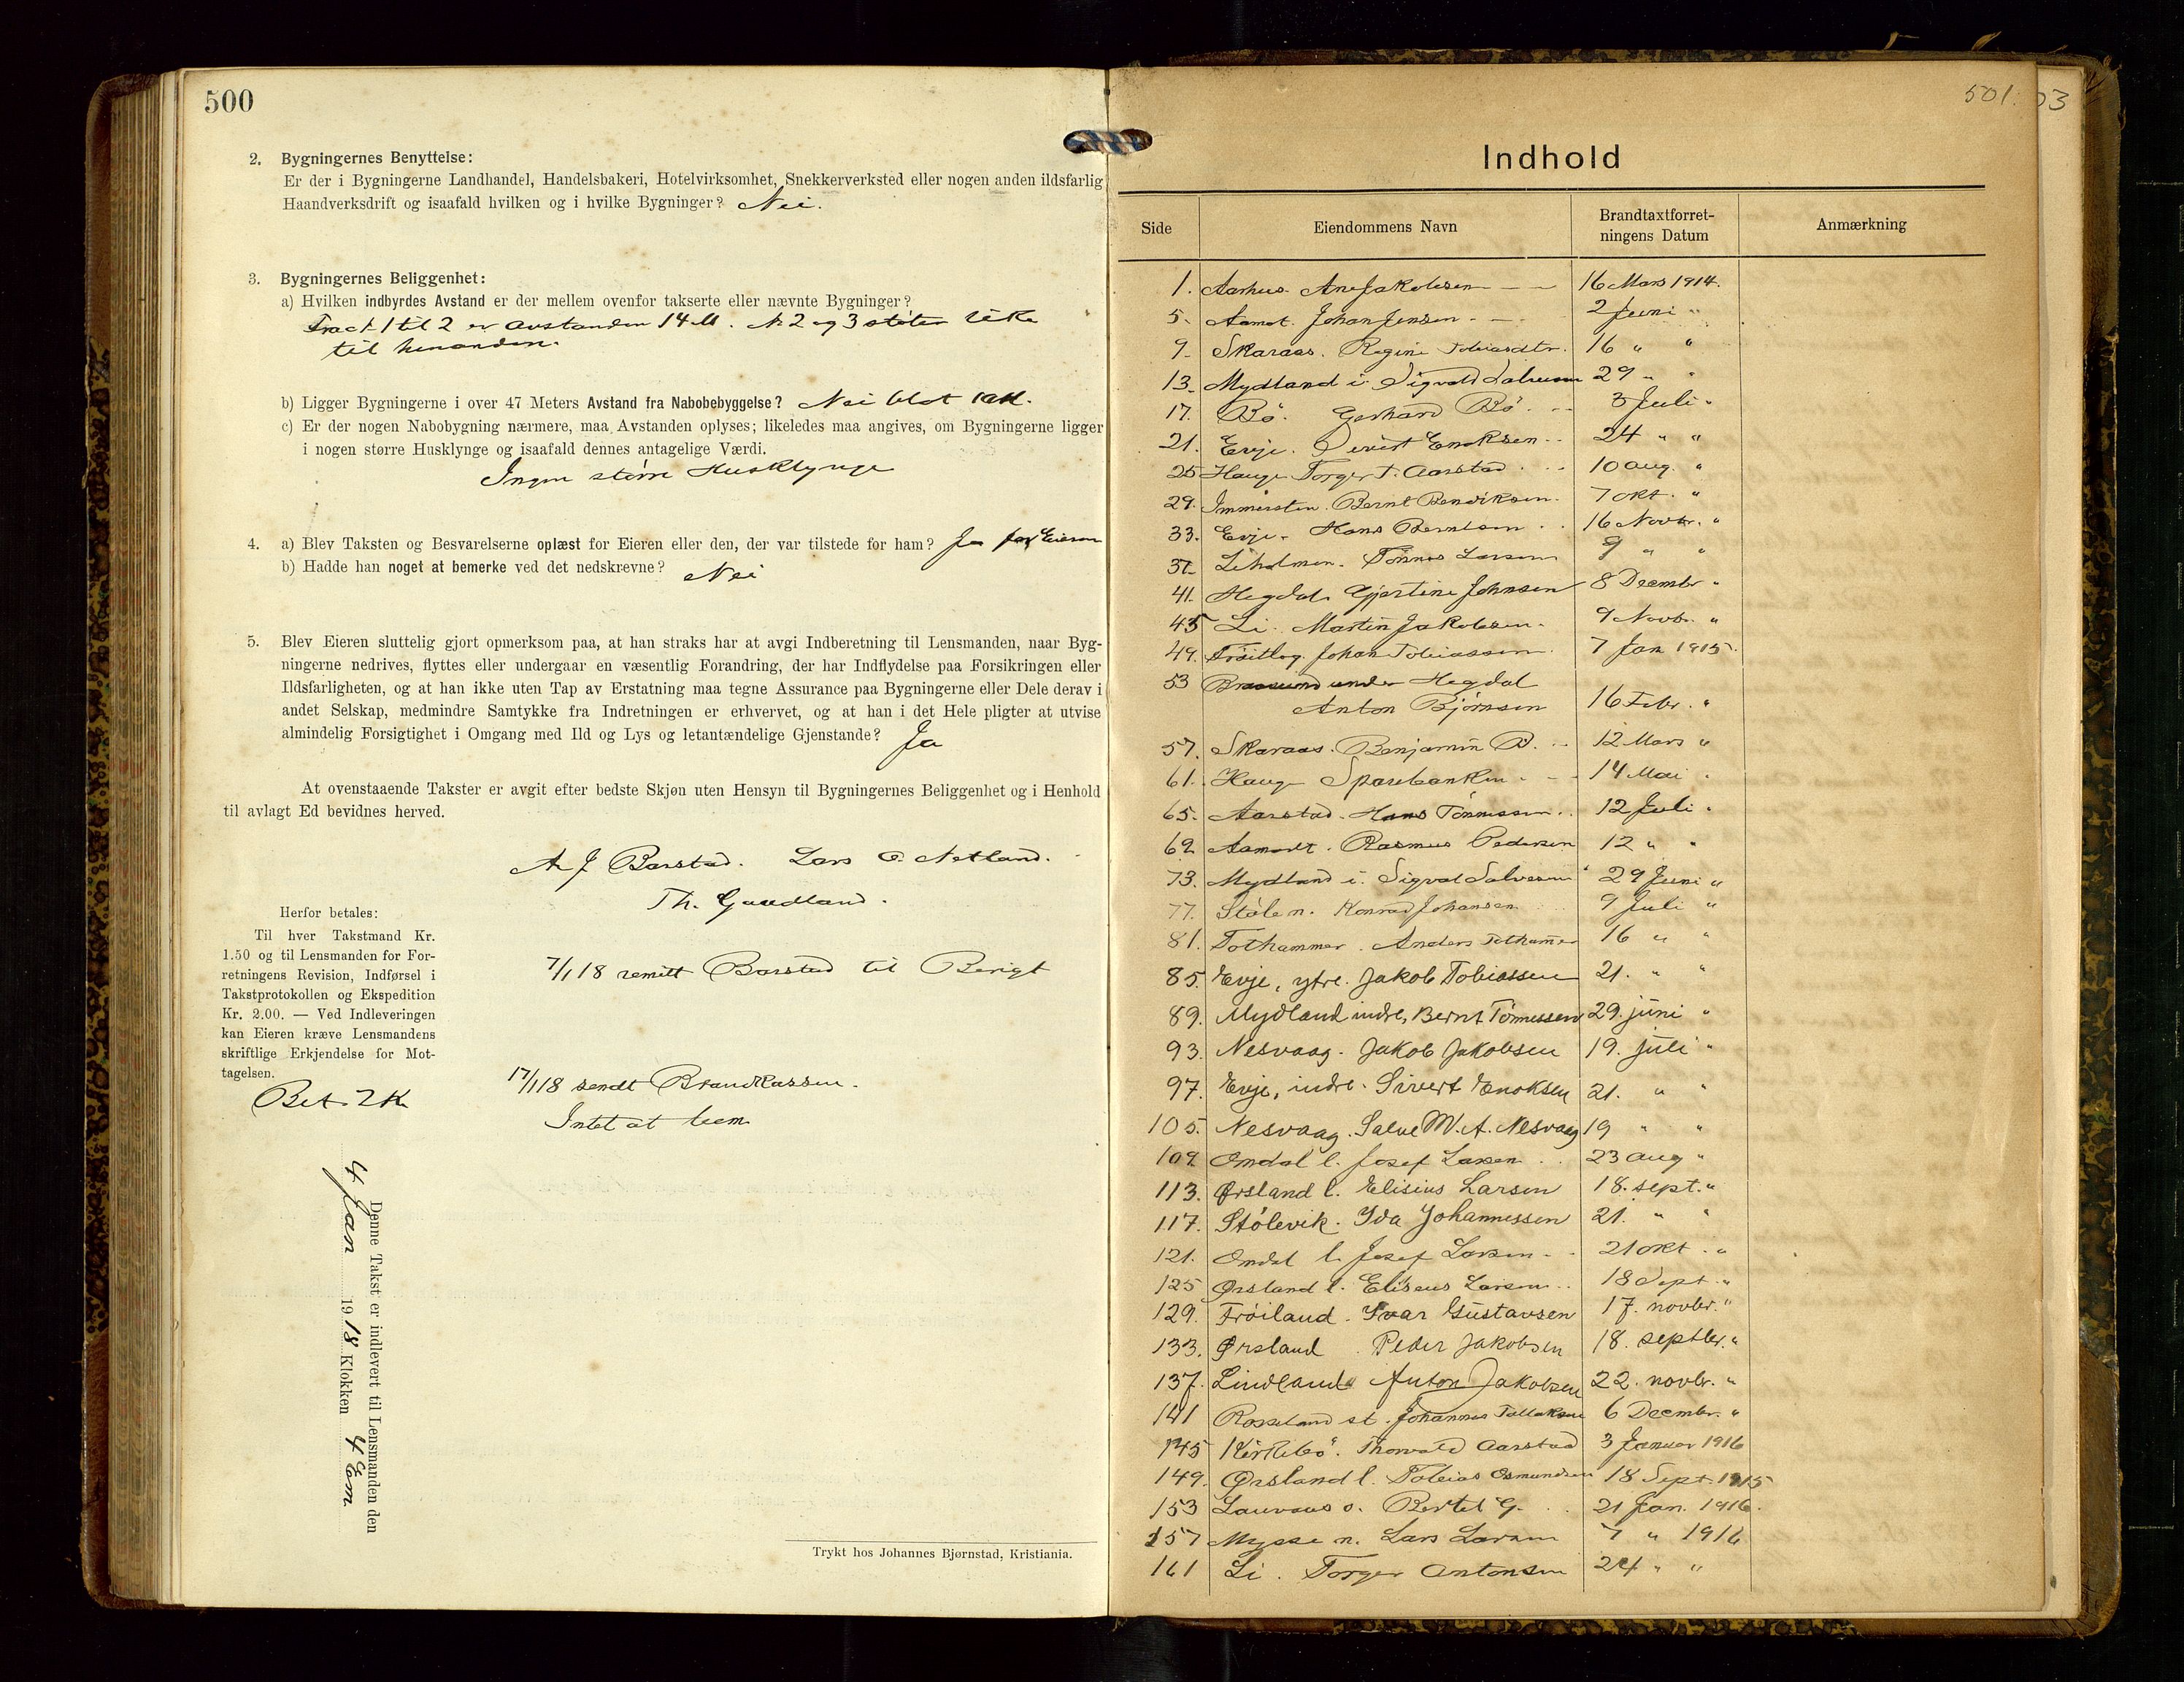 500
2. Bygningernes Benyttelse:
Er der i Bygningerne Landhandel, Handelsbakeri, Hotelvirksomhet, Snekkerverksted eller nogen anden ildsfarlig
Haandverksdrift og isaafald hvilken og i hvilke Bygninger? Nei.
3. Bygningernes Beliggenhet:
a) Hvilken indbyrdes Avstand er der mellem ovenfor takserte eller nævnte Bygninger?
Fra 1 til 2 er avstanden 14 M. No 2 og 3 støter like
til hinanden.
b) Ligger Bygningerne i over 47 Meters Avstand fra Nabobebyggelse? Nei blot
c) Er der nogen Nabobygning nærmere, maa Avstanden oplyses; likeledes maa angives, om Bygningerne ligger
i nogen større Husklynge og isaafald dennes antagelige Værdi.
Ingen større Husklynge
4. a) Blev Taksten og Besvarelserne oplæst for Eieren eller den, der var tilstede for ham? Ja for Eieren
b) Hadde han noget at bemerke ved det nedskrevne? Nei
5. Blev Eieren sluttelig gjort opmerksom paa, at han straks har at avgi Indberetning til Lensmanden, naar Byg-
ningerne nedrives, flyttes eller undergaar en væsentlig Forandring, der har Indflydelse paa Forsikringen eller
Ildsfarligheten, og at han ikke uten Tap av Erstatning maa tegne Assurance paa Bygningerne eller Dele derav i
andet Selskap, medmindre Samtykke fra Indretningen er erhvervet, og at han i det Hele pligter at utvise
almindelig Forsigtighet i Omgang med Ild og Lys og letantændelige Gjenstande? Ja
At ovenstaaende Takster er avgit efter bedste Skjøn uten Hensyn til Bygningernes Beliggenhet og i Henhold
til avlagt Ed bevidnes herved.
A J Barstad. Lars O. Netland.
Th. Gaudland.
Herfor betales:
Til hver Takstmand Kr.
1.50 og til Lensmanden for For-
retningens Revision, Indførsel i
Takstprotokollen og Ekspedition
Kr. 2.00. — Ved Indleveringen
kan Eieren kræve Lensmandens
skriftlige Erkjendelse for Mot-
tagelsen.
Bet. 2 Kr
7/1 18 remitt Barstad til Berigt
17/1 18 sendt Brandkassen.
Intet at bem
Denne Takst er indlevert til Lensmanden den
4 Jan 1918 Klokken 4 Em
Trykt hos Johannes Bjørnstad, Kristiania.
501. 03
Indhold
Side Eiendommens Navn Brandtaxtforret-
ningens Datum Anmærkning
1. Aarhus. Ane Jakobsen — — 16 Mars 1914.
5. Aamot. Johan Jensen. — 2 Juni "
9. Skaraas. Regine Tobiasdtr. 16 " "
13. Mydland i. Sigvald Salvesen 29 " "
17. Bö. Gerhard Bö. 3 Juli "
21. Evje. Sivert Enoksen 24 " "
25 Hauge Torger T. Aarstad 10 aug. "
29. Immersten. Bernt Bendiksen. 7 okt. "
33. Evje. Hans Berntsen 16 Novbr. "
37. Liholmen. Tønnes Larsen 9 " "
41. Hegdal. Gjertine Johnsen 8 Decembr "
45 Li. Martin Jakobsen. 9 Novbr. "
49. Frøitlog. Johan Tobiassen. 7 Jan 1915.
53 under Hegdal
Anton Bjørnsen 16 Febr. "
57. Skaraas. Benjamin B. 12 Mars "
61. Hauge Sparebanken. 14 Mai "
65. Aarstad. Hans Tønnessen. 12 Juli "
69 Aamodt. Rasmus Pedersen 12 " "
73. Mydland i. Sigval Salvesen 29 Juni "
77. Støle n. Konrad Johansen 9 Juli "
81. Tothammer. Anders Tothammer 16 " "
85. Evje, ytre. Jakob Tobiassen 21. " "
89. Mydland indre, Bernt Tønnessen 29. juni "
93. Nesvaag. Jakob Jakobsen 19. juli "
97. Evje, indre. Sivert Enoksen 21. " "
105. Nesvaag. Salve M. A. Nesvaag 19 " "
109 Omdal l. Josef Larsen 23 aug "
113. Ørsland l. Elisius Larsen 18. sept. "
117. Stølevik. Ida Johannessen 21. " "
121. Omdal l. Josef Larsen 21 okt. "
125 Ørsland l. Eliseus Larsen 18 Sept. "
129. Frøiland. Ivar Gustavsen 17. novbr. "
133. Ørsland Peder Jakobsen 18. septbr. "
137. Lindland Anton Jakobsen 22. novbr. "
141 Rosseland st. Johannes Tollaksen 6 Decembr. "
145 Kirkebø. Thorvald Aarstad 3 Januar 1916
149. Ørsland l. Tobias Osmundsen 18 Sept. 1915
153 Lauvaas o. Bertel G. 21 Jan. 1916.
157 Mysse n. Lars Larsen 7 " 1916
161 Li. Torger Antonsen 24 " "